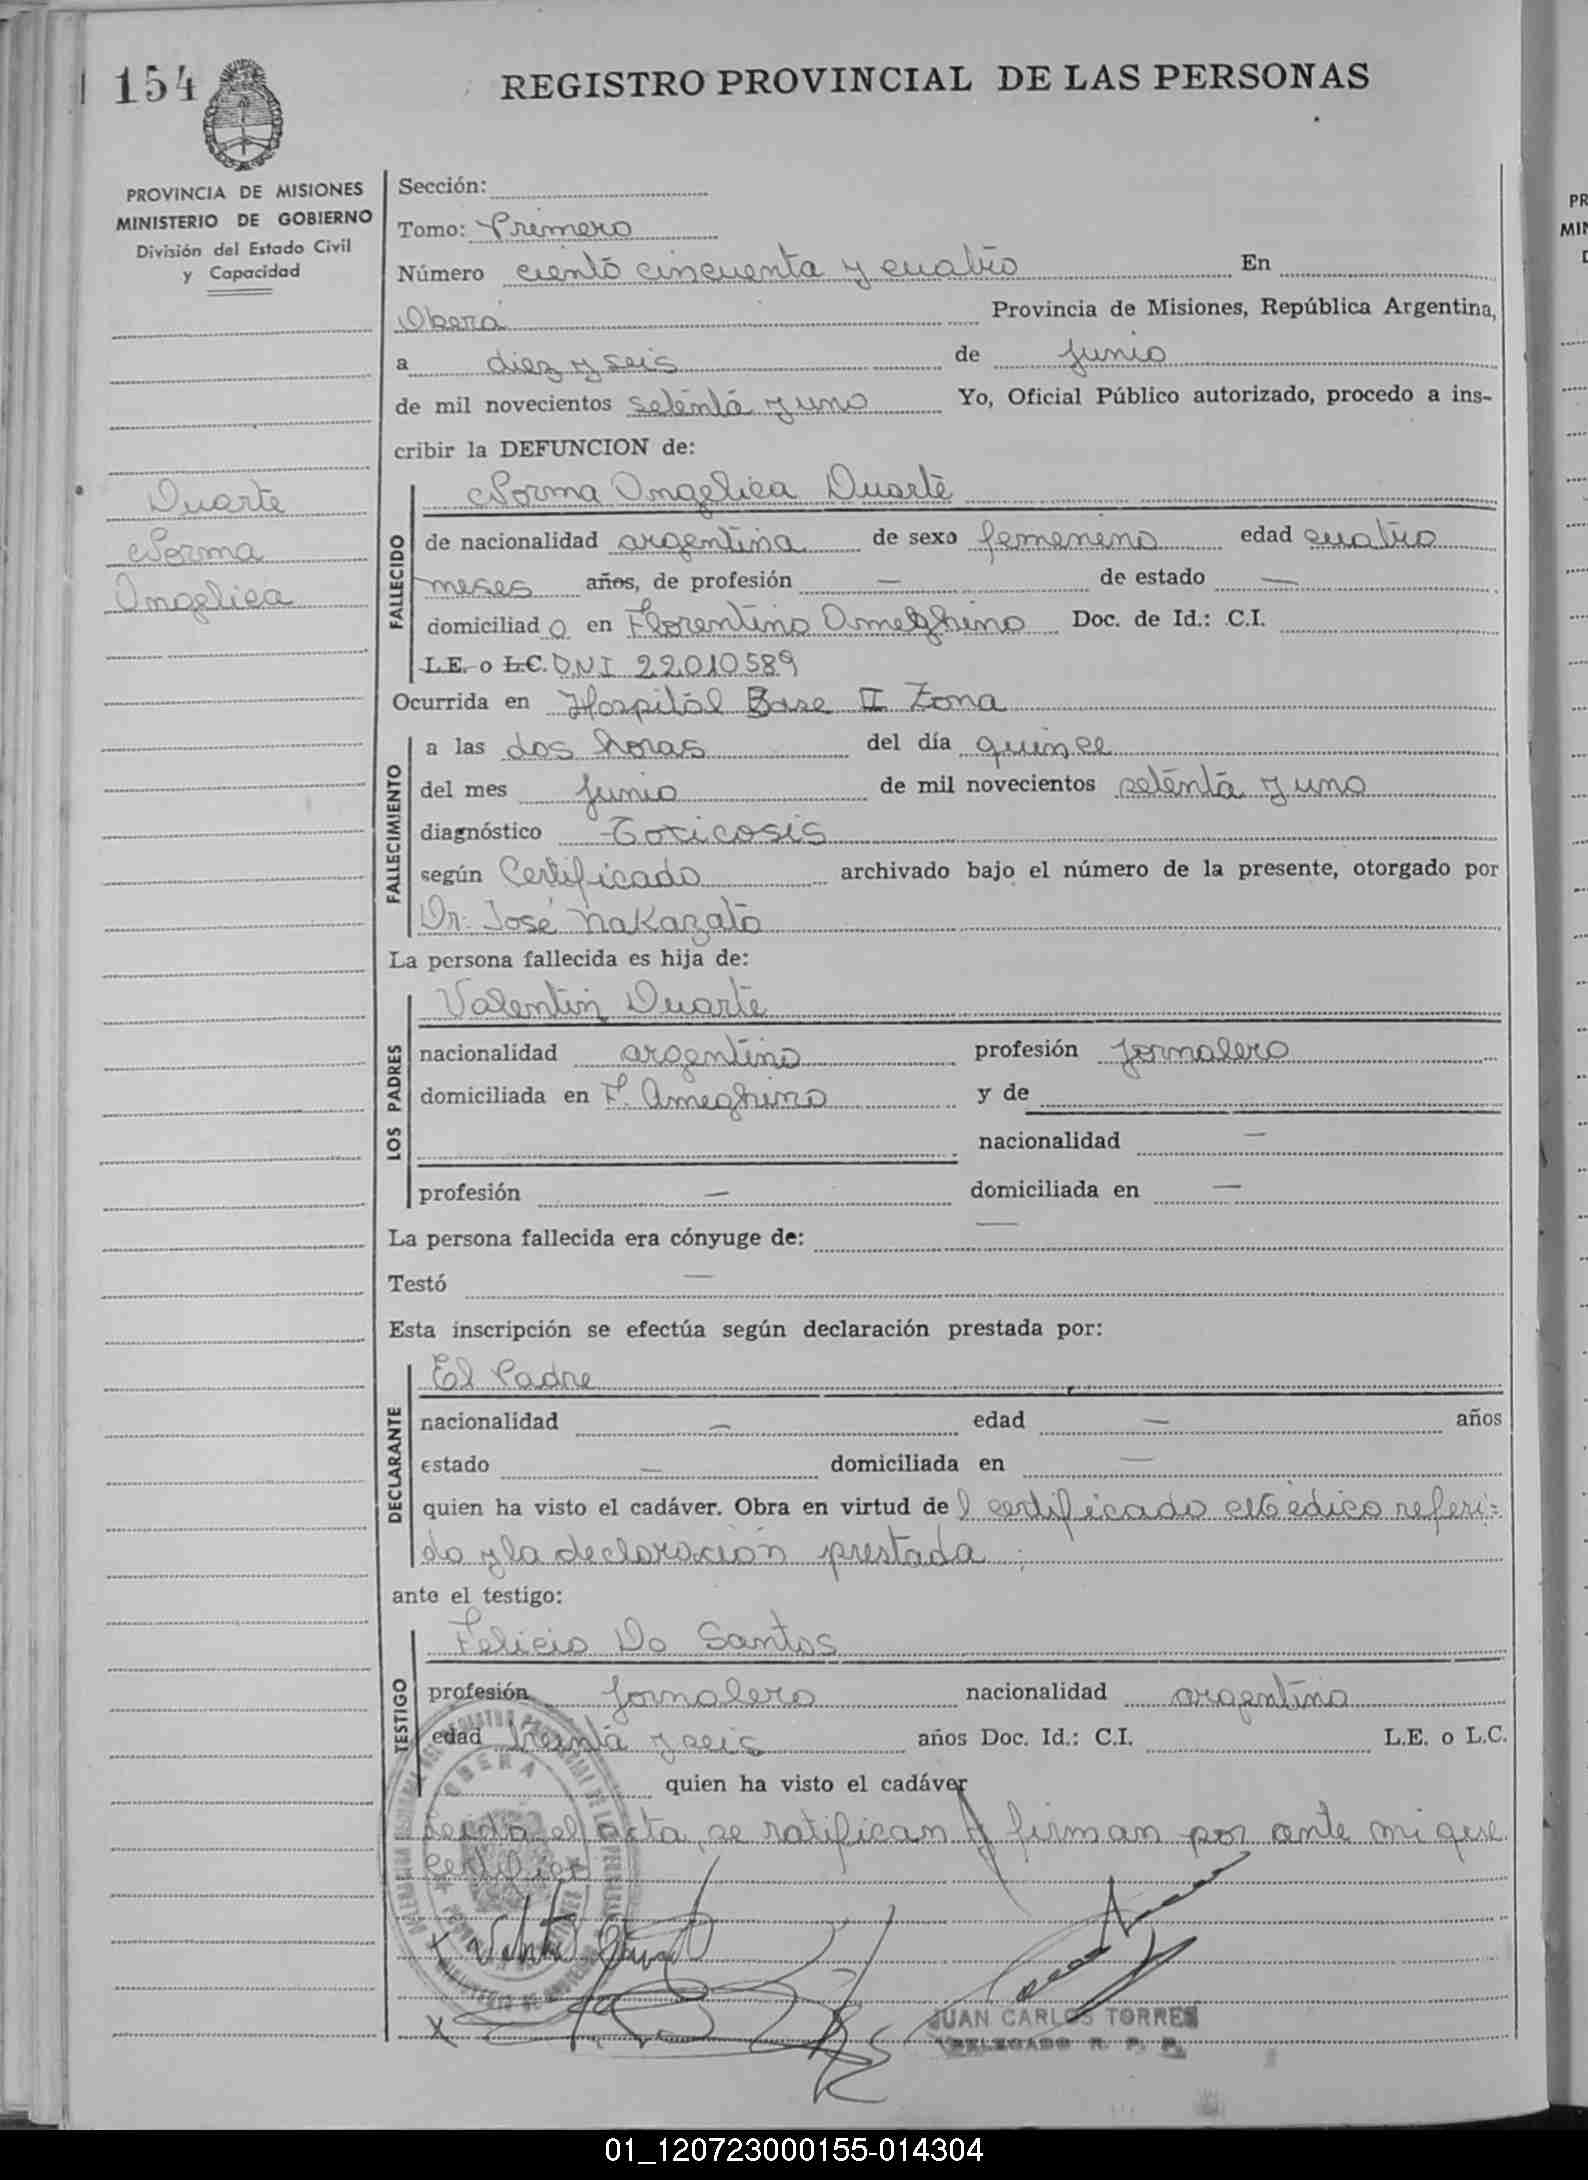 154
REGISTRO PROVINCIAL DE LAS PERSONAS
PROVINCIA DE MISIONES
MINISTERIO DE GOBIERNO
División del Estado Civil
y Capacidad
Duarte
Norma
Angelica
Sección:
Tomo: Primero
Número ciento cincuenta y cuatro En
Oberá Provincia de Misiones, República Argentina,
a diez y seis de junio
de mil novecientos setenta y uno Yo, Oficial Público autorizado, procedo a ins-
cribir la DEFUNCION de:
FALLECIDO
Norma Angelica Duarte
de nacionalidad argentina de sexo femenino edad cuatro
meses años, de profesión — de estado —
domiciliad o en Florentino Ameghino Doc. de Id.: C.I.
L.E. o L.C. D.N.I 22.010.589
Ocurrida en Hospital Base II Zona
FALLECIMIENTO
a las dos horas del día quince
del mes junio de mil novecientos setenta y uno
diagnóstico Toxicosis
según Certificado archivado bajo el número de la presente, otorgado por
Dr. José Nakazato
La persona fallecida es hija de:
LOS PADRES
Valentin Duarte
nacionalidad argentino profesión jornalero
domiciliada en F. Ameghino y de
nacionalidad —
profesión — domiciliada en —
La persona fallecida era cónyuge de: —
Testó —
Esta inscripción se efectúa según declaración prestada por:
DECLARANTE
El Padre
nacionalidad — edad — años
estado — domiciliada en —
quien ha visto el cadáver. Obra en virtud de l certificado Médico referi=
do y la declaración prestada
ante el testigo:
TESTIGO
Felicio Do Santos
profesión jornalero nacionalidad argentino
edad treinta y seis años Doc. Id.: C.I. L.E. o L.C.
quien ha visto el cadáver
OBERA
Leida el acta, se ratifican y firman por ante mi que
certifico
JUAN CARLOS TORRES
DELEGADO R. P. P.
PR
MIN
01_120723000155-014304